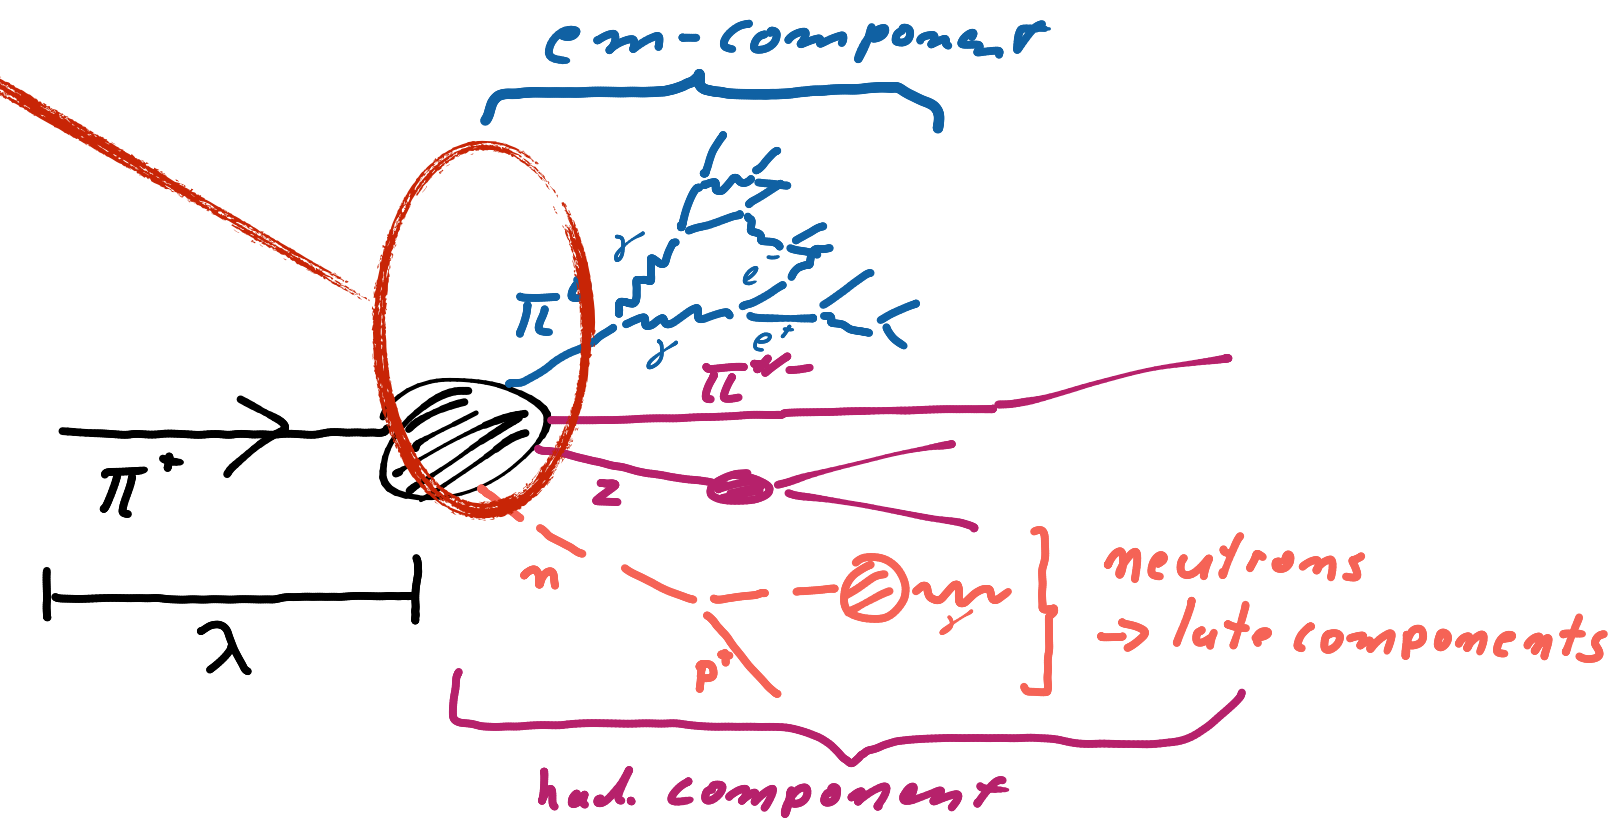 em-component
γ
e⁻
π⁰
γ
e⁺
π⁺/⁻
π⁺
z
n
neutrons
γ
→ late components
λ
p⁺
had. component